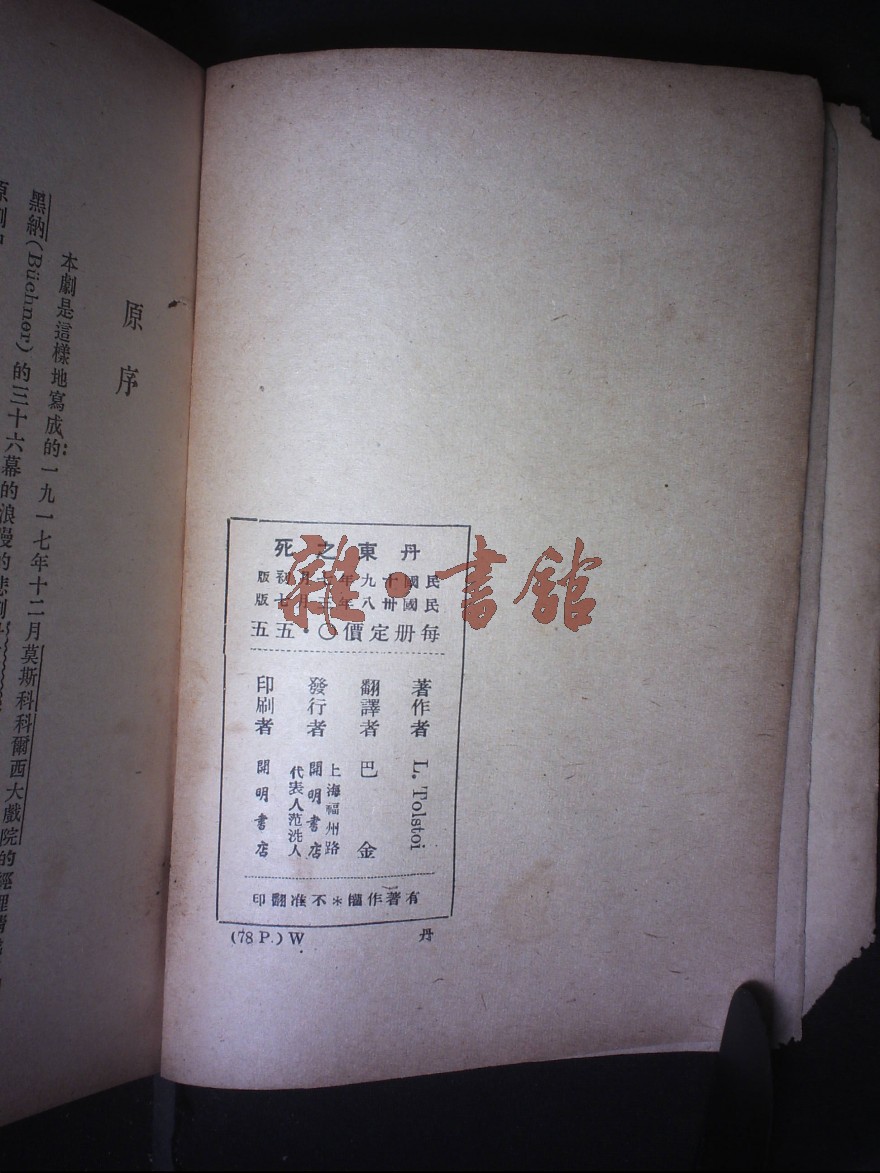 原序
本劇是這樣地寫成的:一九一七年十二月莫斯科科爾西大戲院的經理
黑納(Büchner)的三十六幕的浪漫的悲劇
丹東之死
民國十九年七月初版
民國卅八年三月七版
每册定價〇·五五
著作者 L. Tolstoi
翻譯者 巴金
發行者 上海福州路
開明書店
代表人范洗人
印刷者 開明書店
有著作權*不准翻印
(78 P.) W 丹
雜·書館